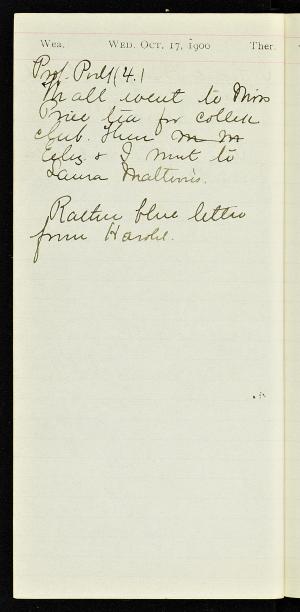 Wea. WED. OCT. 17, 1900 Ther.
Prof. (4.)
We all went to Miss
Price tea for college
club. Then
& I went to
Laura
Rather blue letter
from Harold.